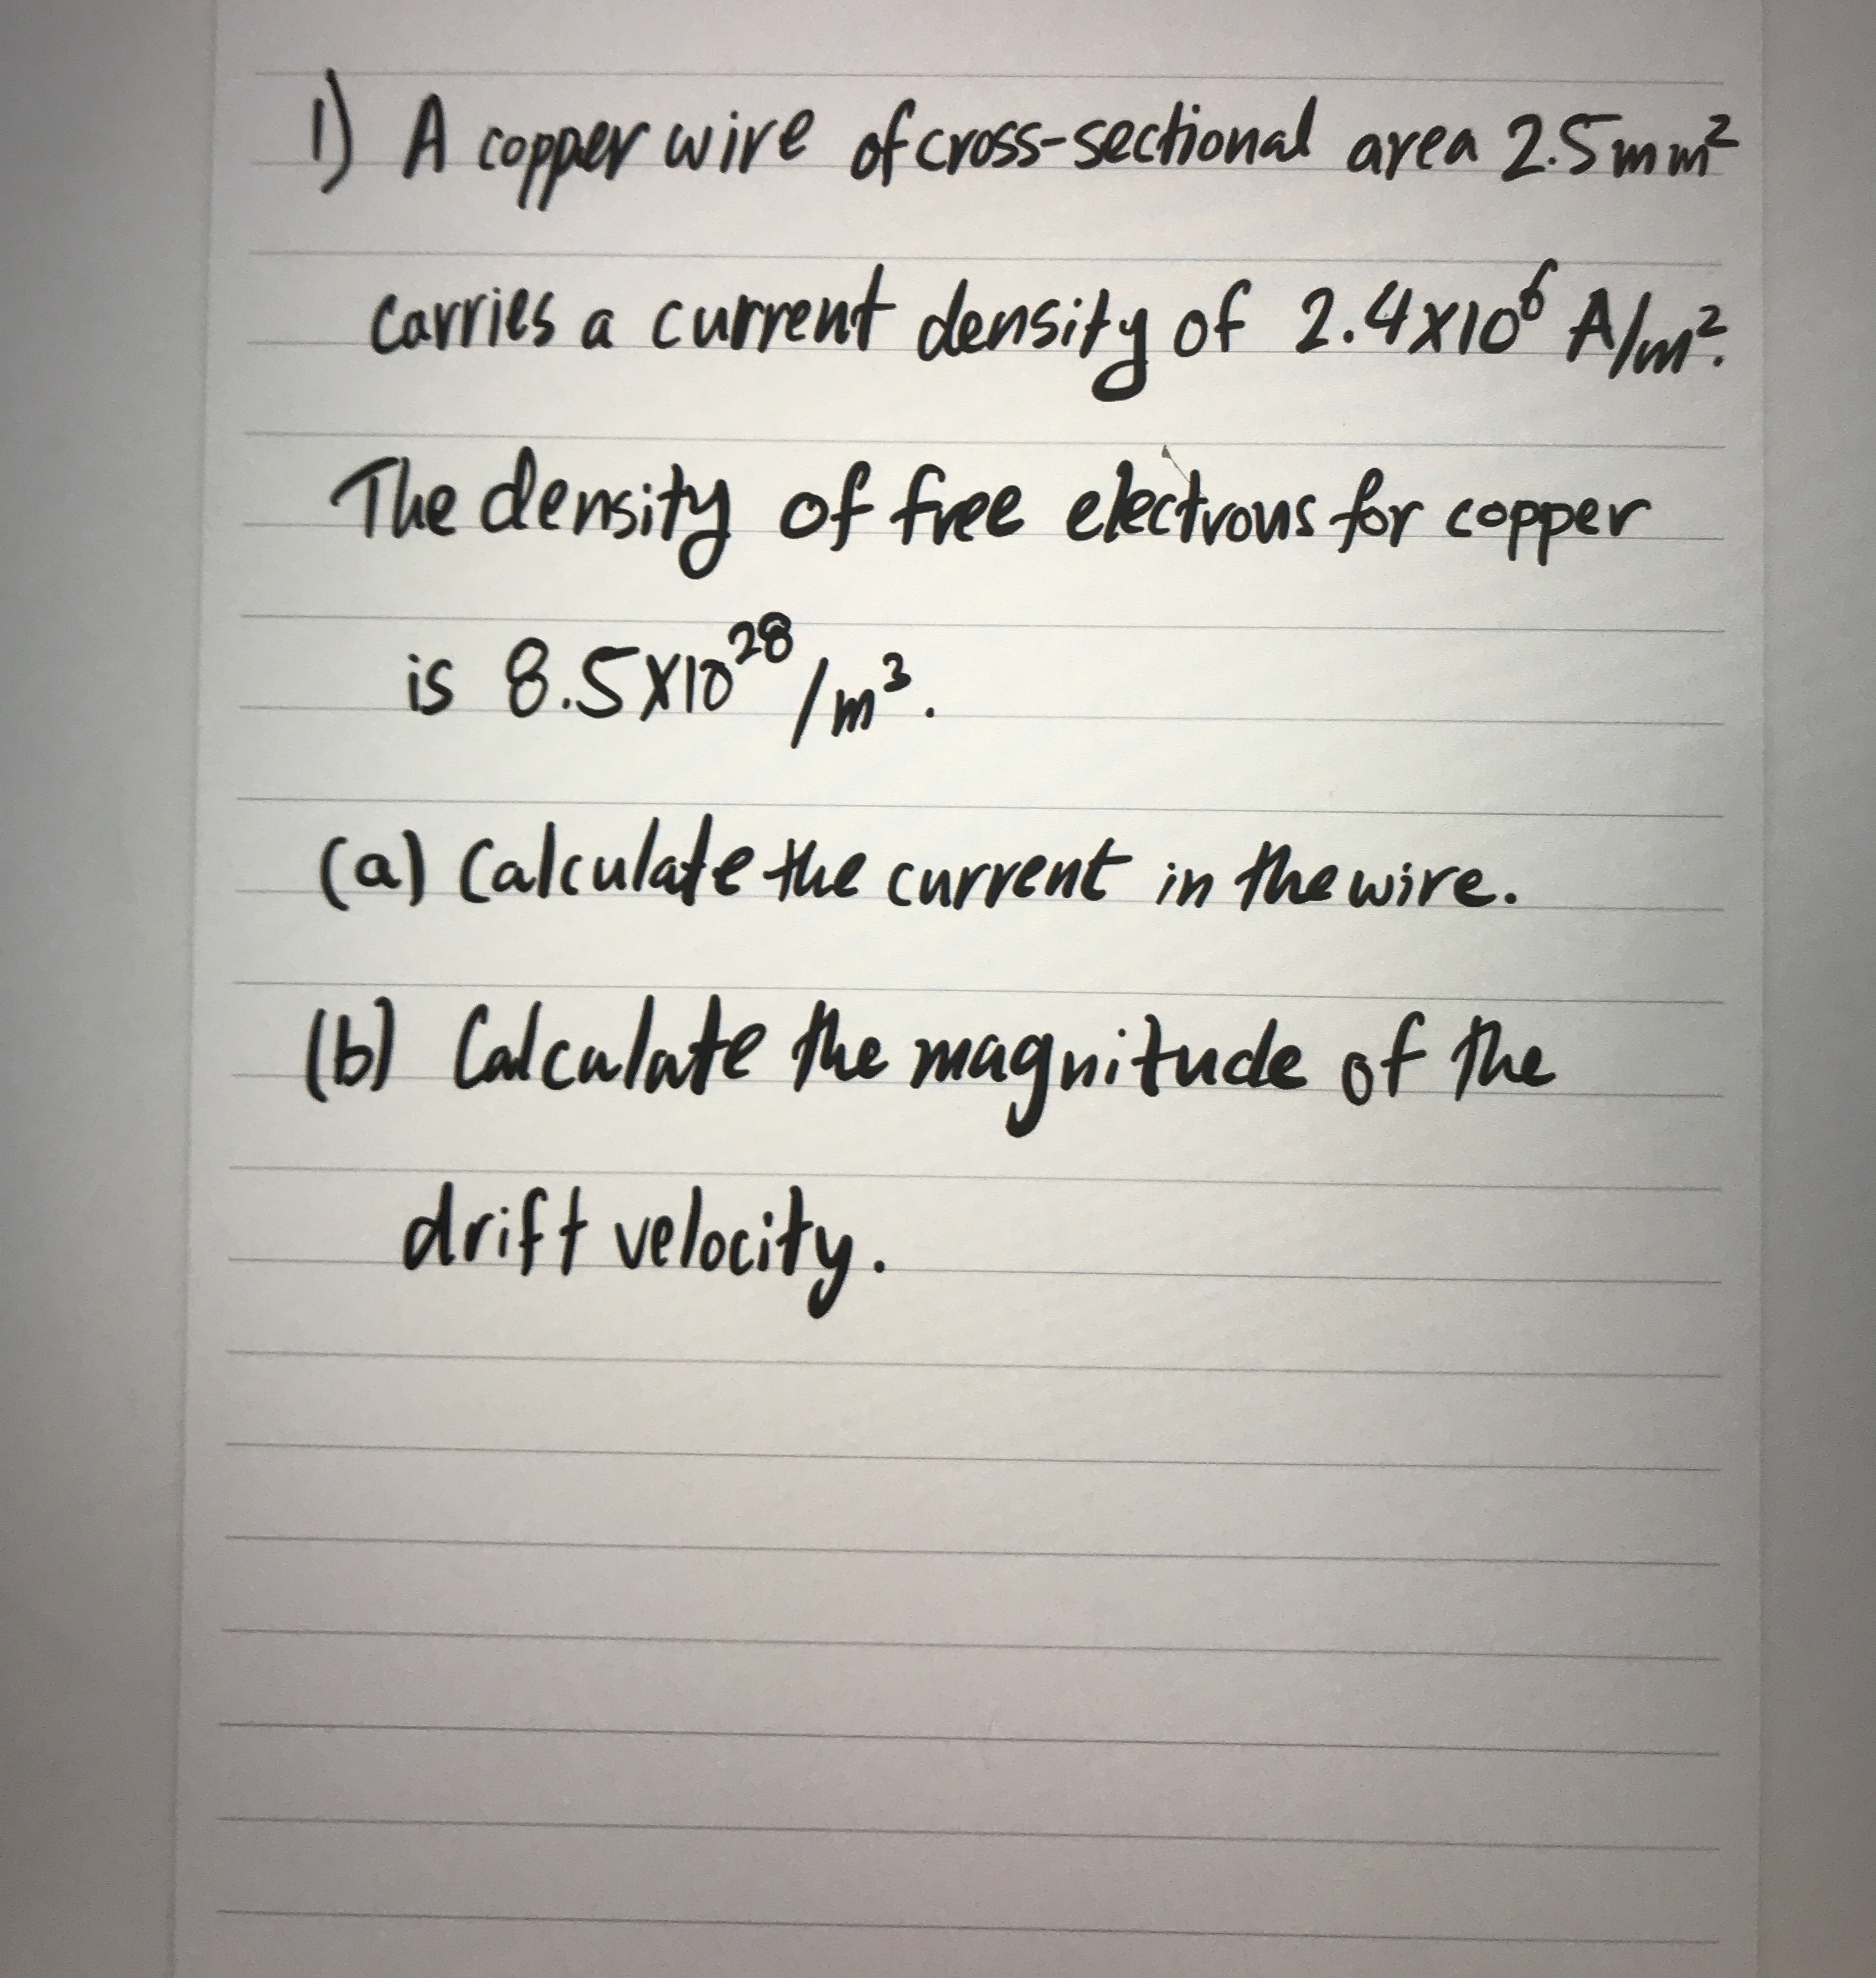 1) A copper wire of cross-sectional area 2.5mm²
carries a current density of 2.4x10⁶ A/m².
The density of free electrons for copper
is 8.5X10²⁸/m³.
(a) Calculate the current in the wire.
(b) Calculate the magnitude of the
drift velocity.